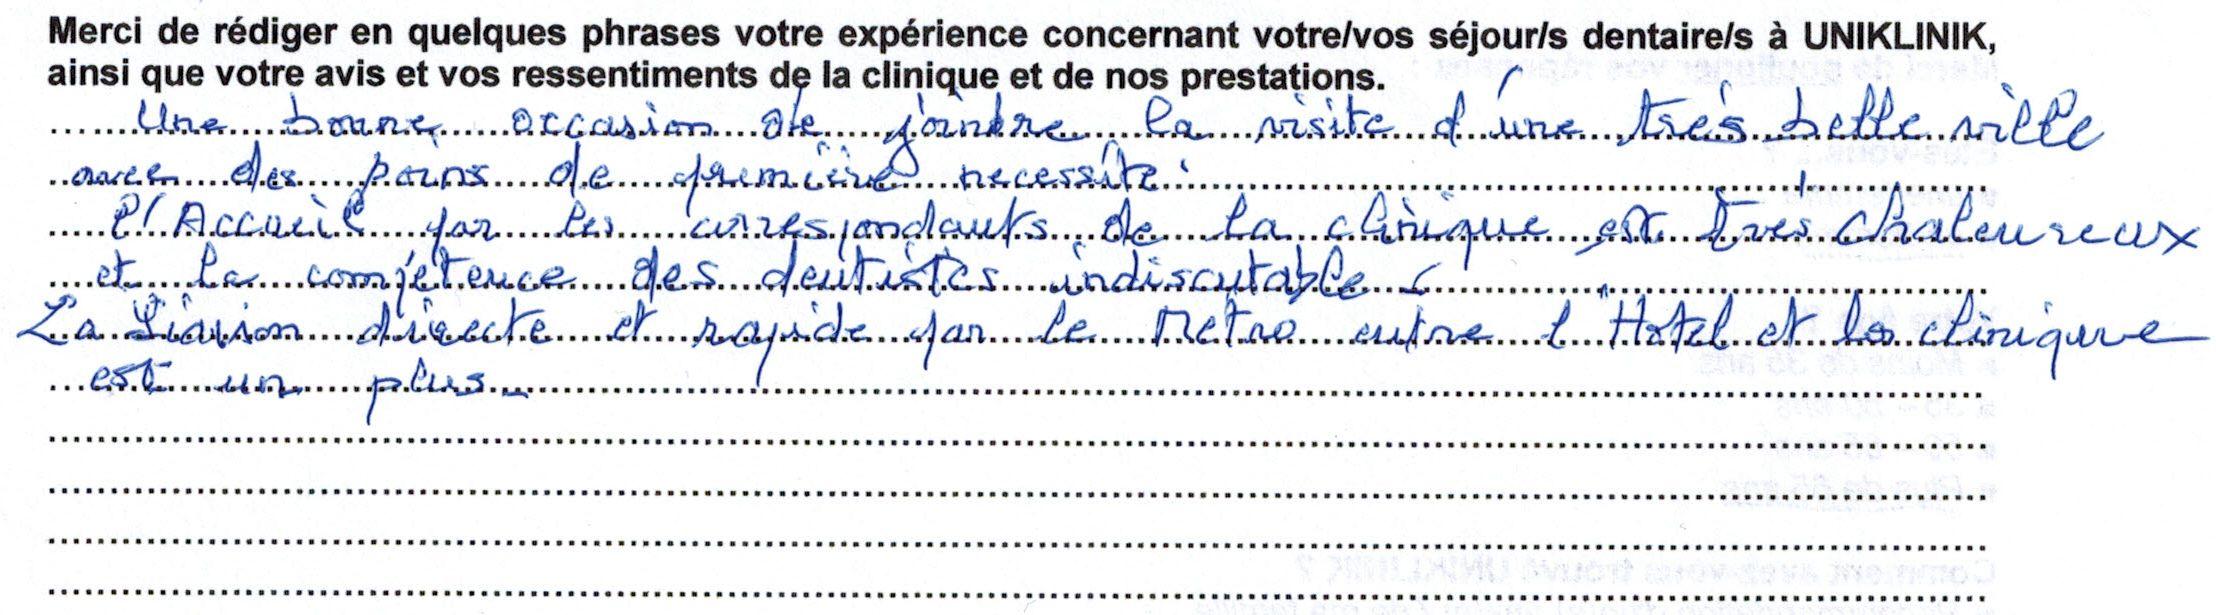 Merci de rédiger en quelques phrases votre expérience concernant votre/vos séjour/s dentaire/s à UNIKLINIK,
ainsi que votre avis et vos ressentiments de la clinique et de nos prestations.
Une bonne occasion de joindre la visite d'une très belle ville
avec des soins de première necessité.
l'Accueil par les correspondants de la clinique est très chaleureux
et la compétence des dentistes indiscutable.
La liaison directe et rapide par le Metro entre l'Hotel et la clinique
est un plus.
Merci de souligner vos réponses :
Etes-vous... ?
Moins de 35 ans
Plus de 65 ans
Comment avez-vous trouvé UNIKLINIK ?